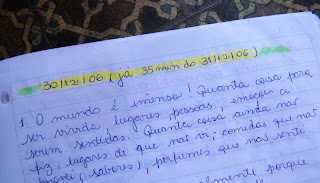 30/12/06 (já 35min do 31/12/06)
1. O mundo é imenso! Quanta coisa para
ser vivida, lugares, pessoas, emoções a
serem sentidas. Quanta coisa ainda não
fiz, lugares de que não vi, comidas que não
provei, sabores, perfumes que não senti
porque